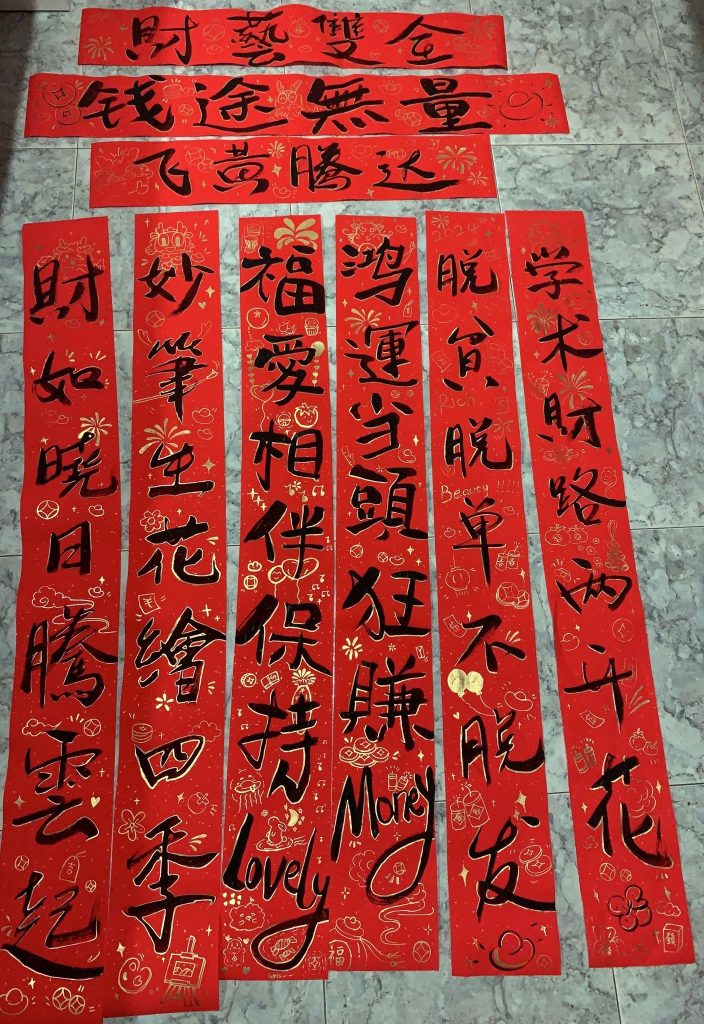 財藝雙全
钱途無量
飞黃腾达
財如曉日騰雲起
妙筆生花繪四季
福愛相伴保持Lovely
鸿運当頭狂賺Money
脱貧脱单不脱发
学术財路两开花
2024
Rich
Beauty !!!!
福